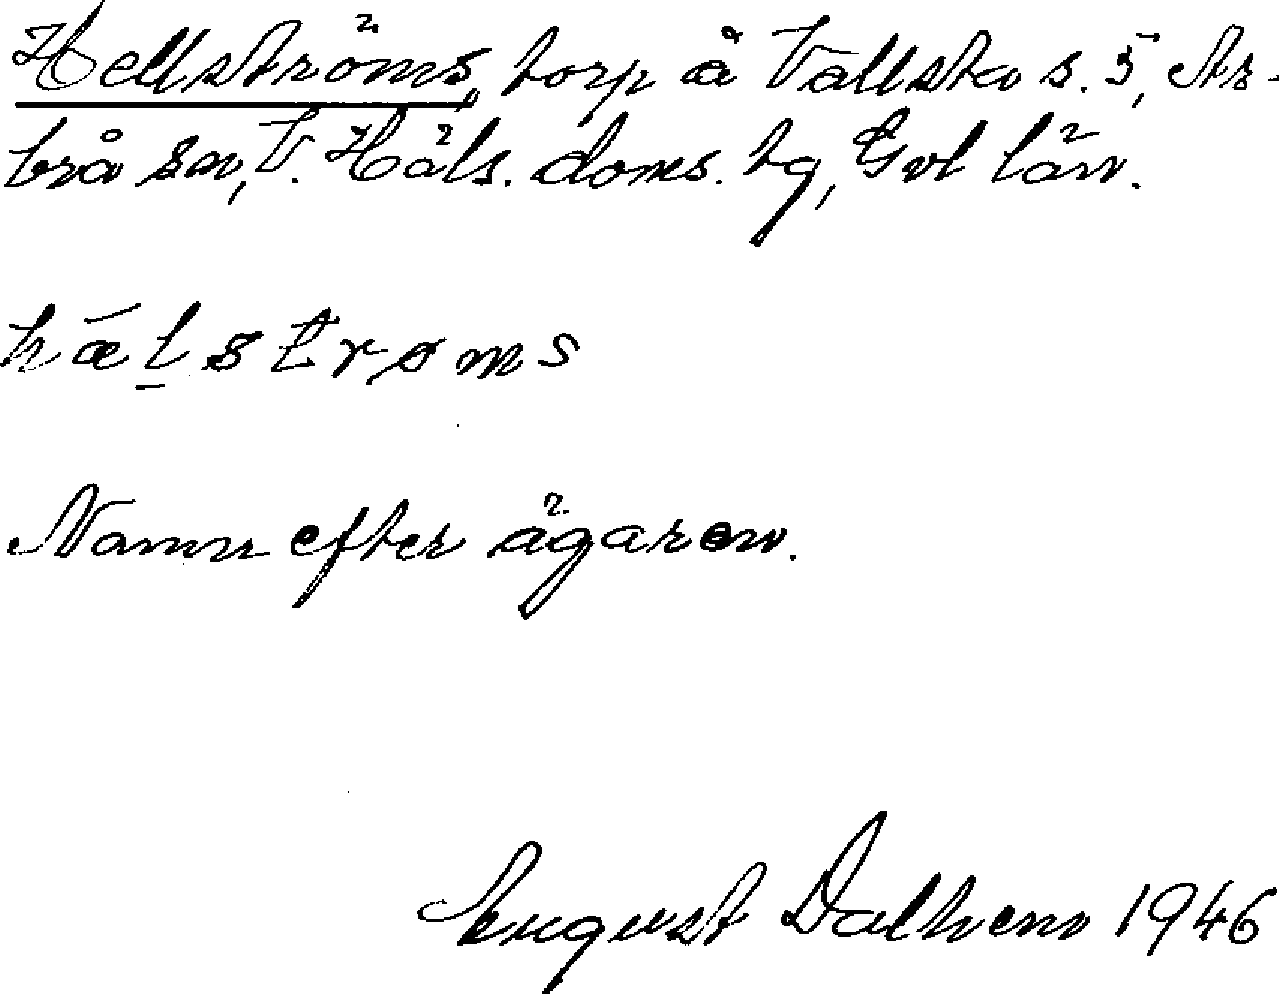 Hellströms, torp å Vallsta s. 5, Ar-
brå sn, V. Häls. doms. tg, Gvl län.
hǽlstrøms
Namn efter ägaren.
August Dalhem 1946